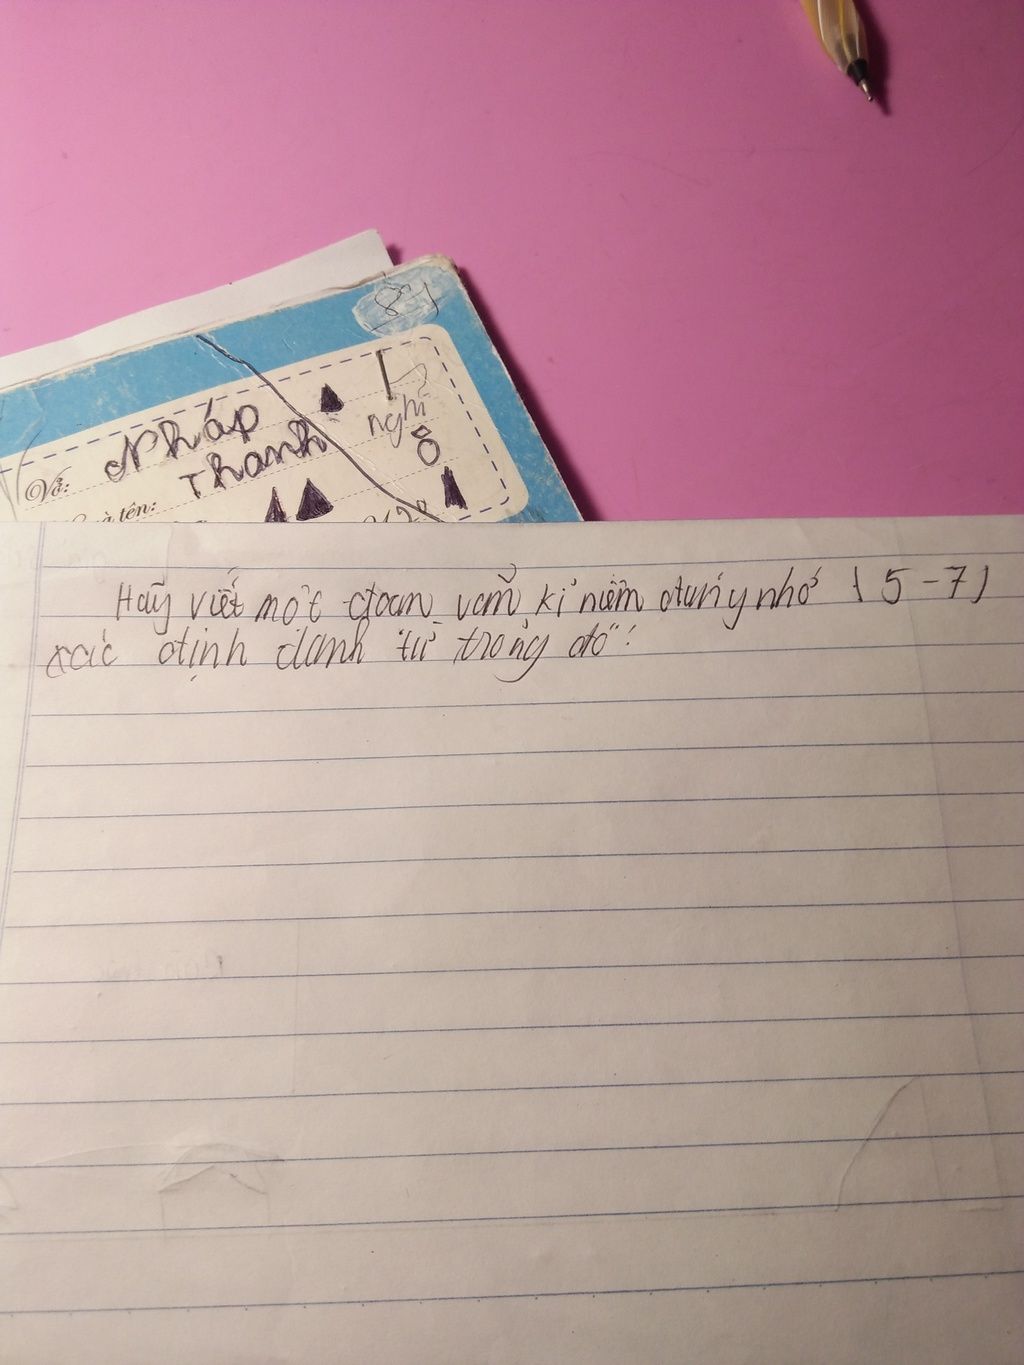 Vở: Nháp
và tên: Thanh
nghĩ
Hãy viết một đoạn văn kỉ niệm đáng nhớ ( 5 - 7 )
xác định danh từ trong đó !